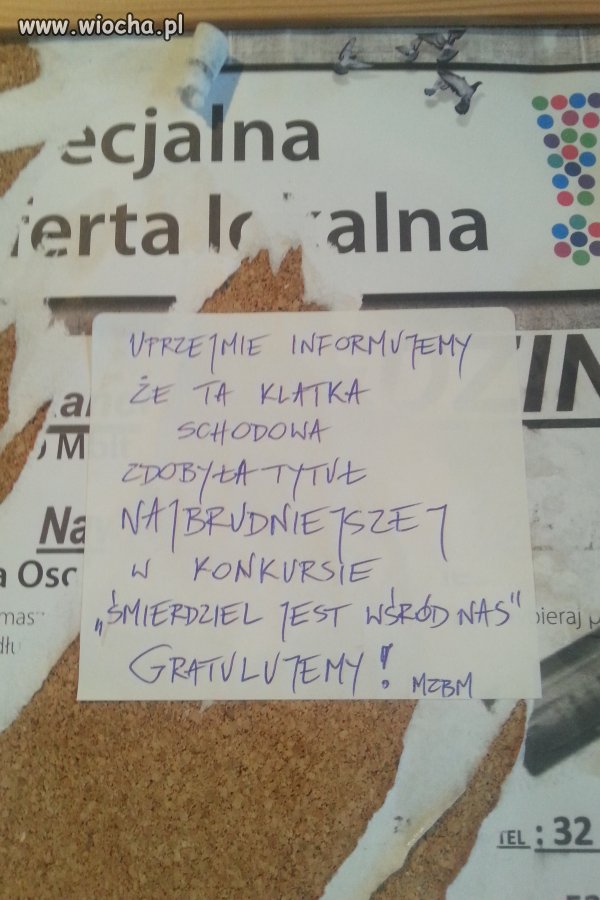 www.wiocha.pl
ecjalna
ferta lokalna
UPRZEJMIE INFORMUJEMY
ŻE TA KLATKA
SCHODOWA
ZDOBYŁA TYTUŁ
NAJBRUDNIEJSZEJ
W KONKURSIE
„ŚMIERDZIEL JEST WŚRÓD NAS”
GRATULUJEMY!
MZBM
ZIN
Na
a Osc
mas
bieraj
TEL : 32